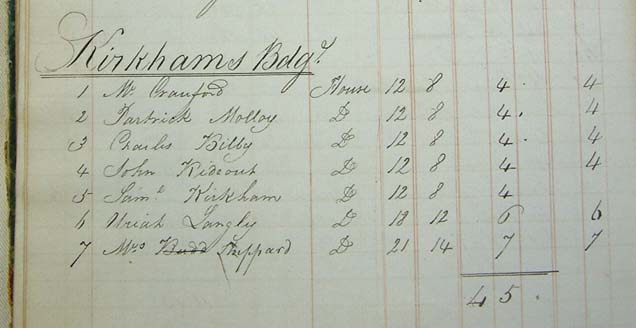 Kirkhams Bdgs
1 Mr Crauford House 12 8 4. 4
2 Partrick Molloy D 12 8 4. 4
3 Charles Bilby D 12 8 4. 4
4 John Rideout D 12 8 4 4
5 Saml Kirkham D 12 8 4
6 Uriah Langly D 18 12 6 6
7 Mrs Budd Sheppard D 21 14 7 7
45.